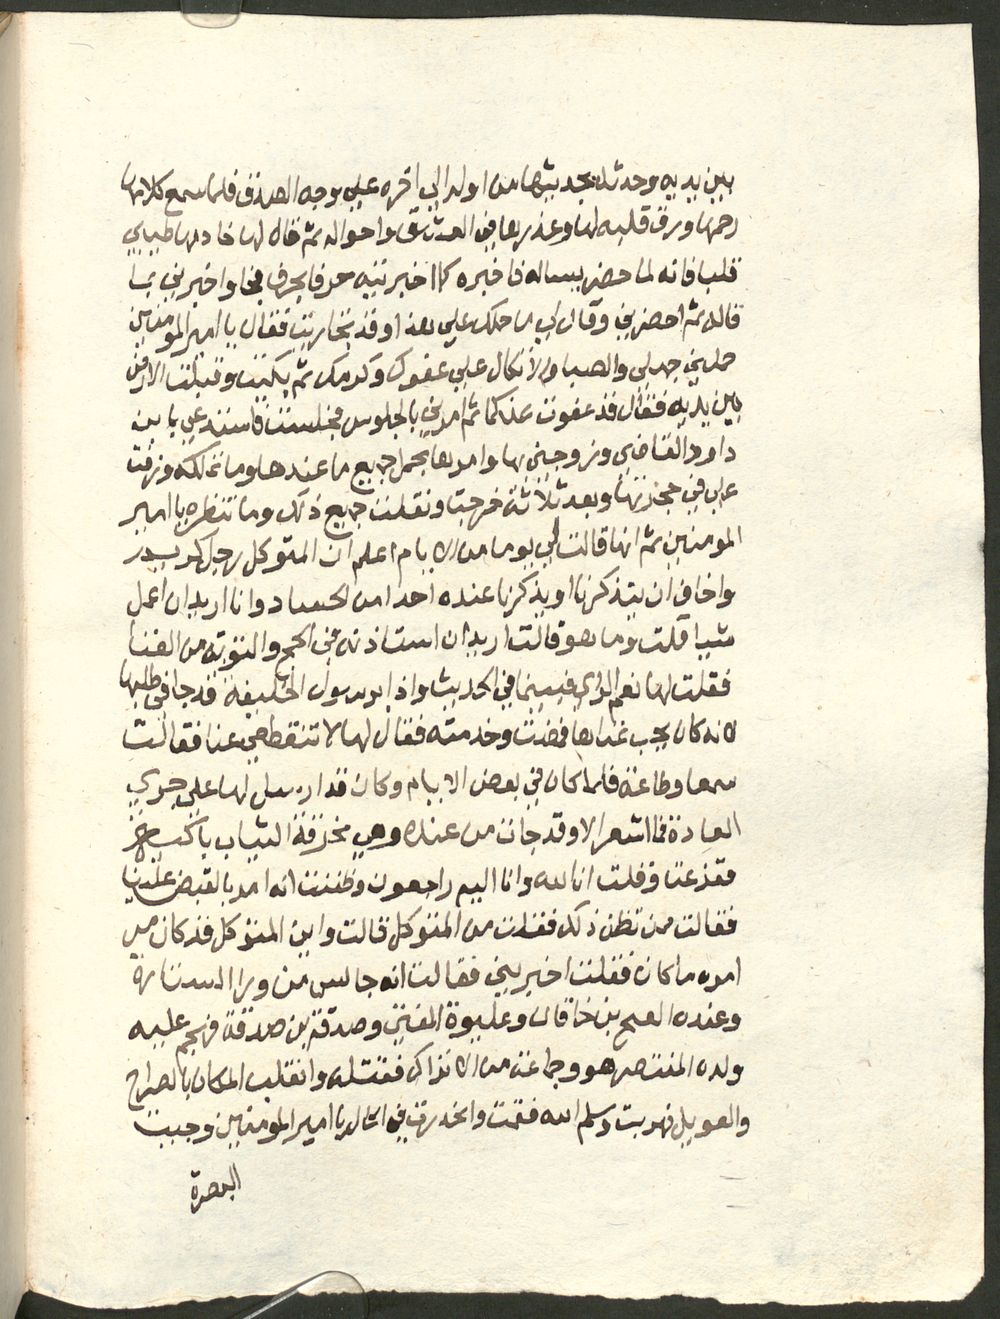 بين يديه وحدثته بحديثها من اوله الي اخره علي وجه الصدق فلما سمع كلامها
رحمها ورق قلبه لها وعذرها في العشق واحواله ثم قال لها خادمها طيبي
قلبا فانه لما حضر يساله فاخبره كما اخبرتيه حرفا بحرف فجا واخبرني بما
قاله ثم احضرني وقال لي ما حملك علي هذا وقد تجاريت فقال يا امير المومنين
حملني جهلي والصبا والاتكال علي عفوك وكرمك ثم بكيت وقبلت الارض
بين يديه فقال قد عفوت عنكما ثم امرني بالجلوس فجلست فاستدعي بابن
داود القاضي وزوجني بها وامرها بحمل جميع ما عندها وما تملكه وزفت
علي في حجرتها وبعد ثلاثة خرجت ونقلت جميع ذلك وما تنظره يا امير
المومنين ثم انها قالت لي يوما من الايام اعلم ان المتوكل رجل
واخاف ان يتذكرنا او يذكرنا عنده احدا من الحساد وانا اريد ان اعمل
شيا قلت وما هو قالت اريد ان استاذنه في الحج والتوبة من الغنا
فقلت لها نعم الراي فبينما في الحديث واذا برسول الخليفة قد جا في طلبها
لانه كان يحب غناها فمضت وخدمته فقال لها لا تنقطعي عنا فقالت
سمعا وطاعة فلما كان في بعض الايام وكان قد ارسل لها علي جري
العادة فما اشعر الا وقد جات من عنده وهي مخزقة الثياب باكية
فقزعت وقلت انا لله وانا اليه راجعون وظننت انه امر بالقبض علينا
فقالت من تظن ذلك فقلت من المتوكل قالت واين المتوكل قد كان من
امره ما كان فقلت اخبريني فقالت انه جالس من ورا الستارة
وعنده الفتح بن خاقان وعليوة المغني وصدقة بن صدقة فهجم عليه
ولده المنتصر هو وجماعة من الاتراك فقتله وانقلب المكان بالصراخ
والعويل فهربت وسلم الله فقمت وانحدرت في الحال يا امير المومنين وجيت
البصرة